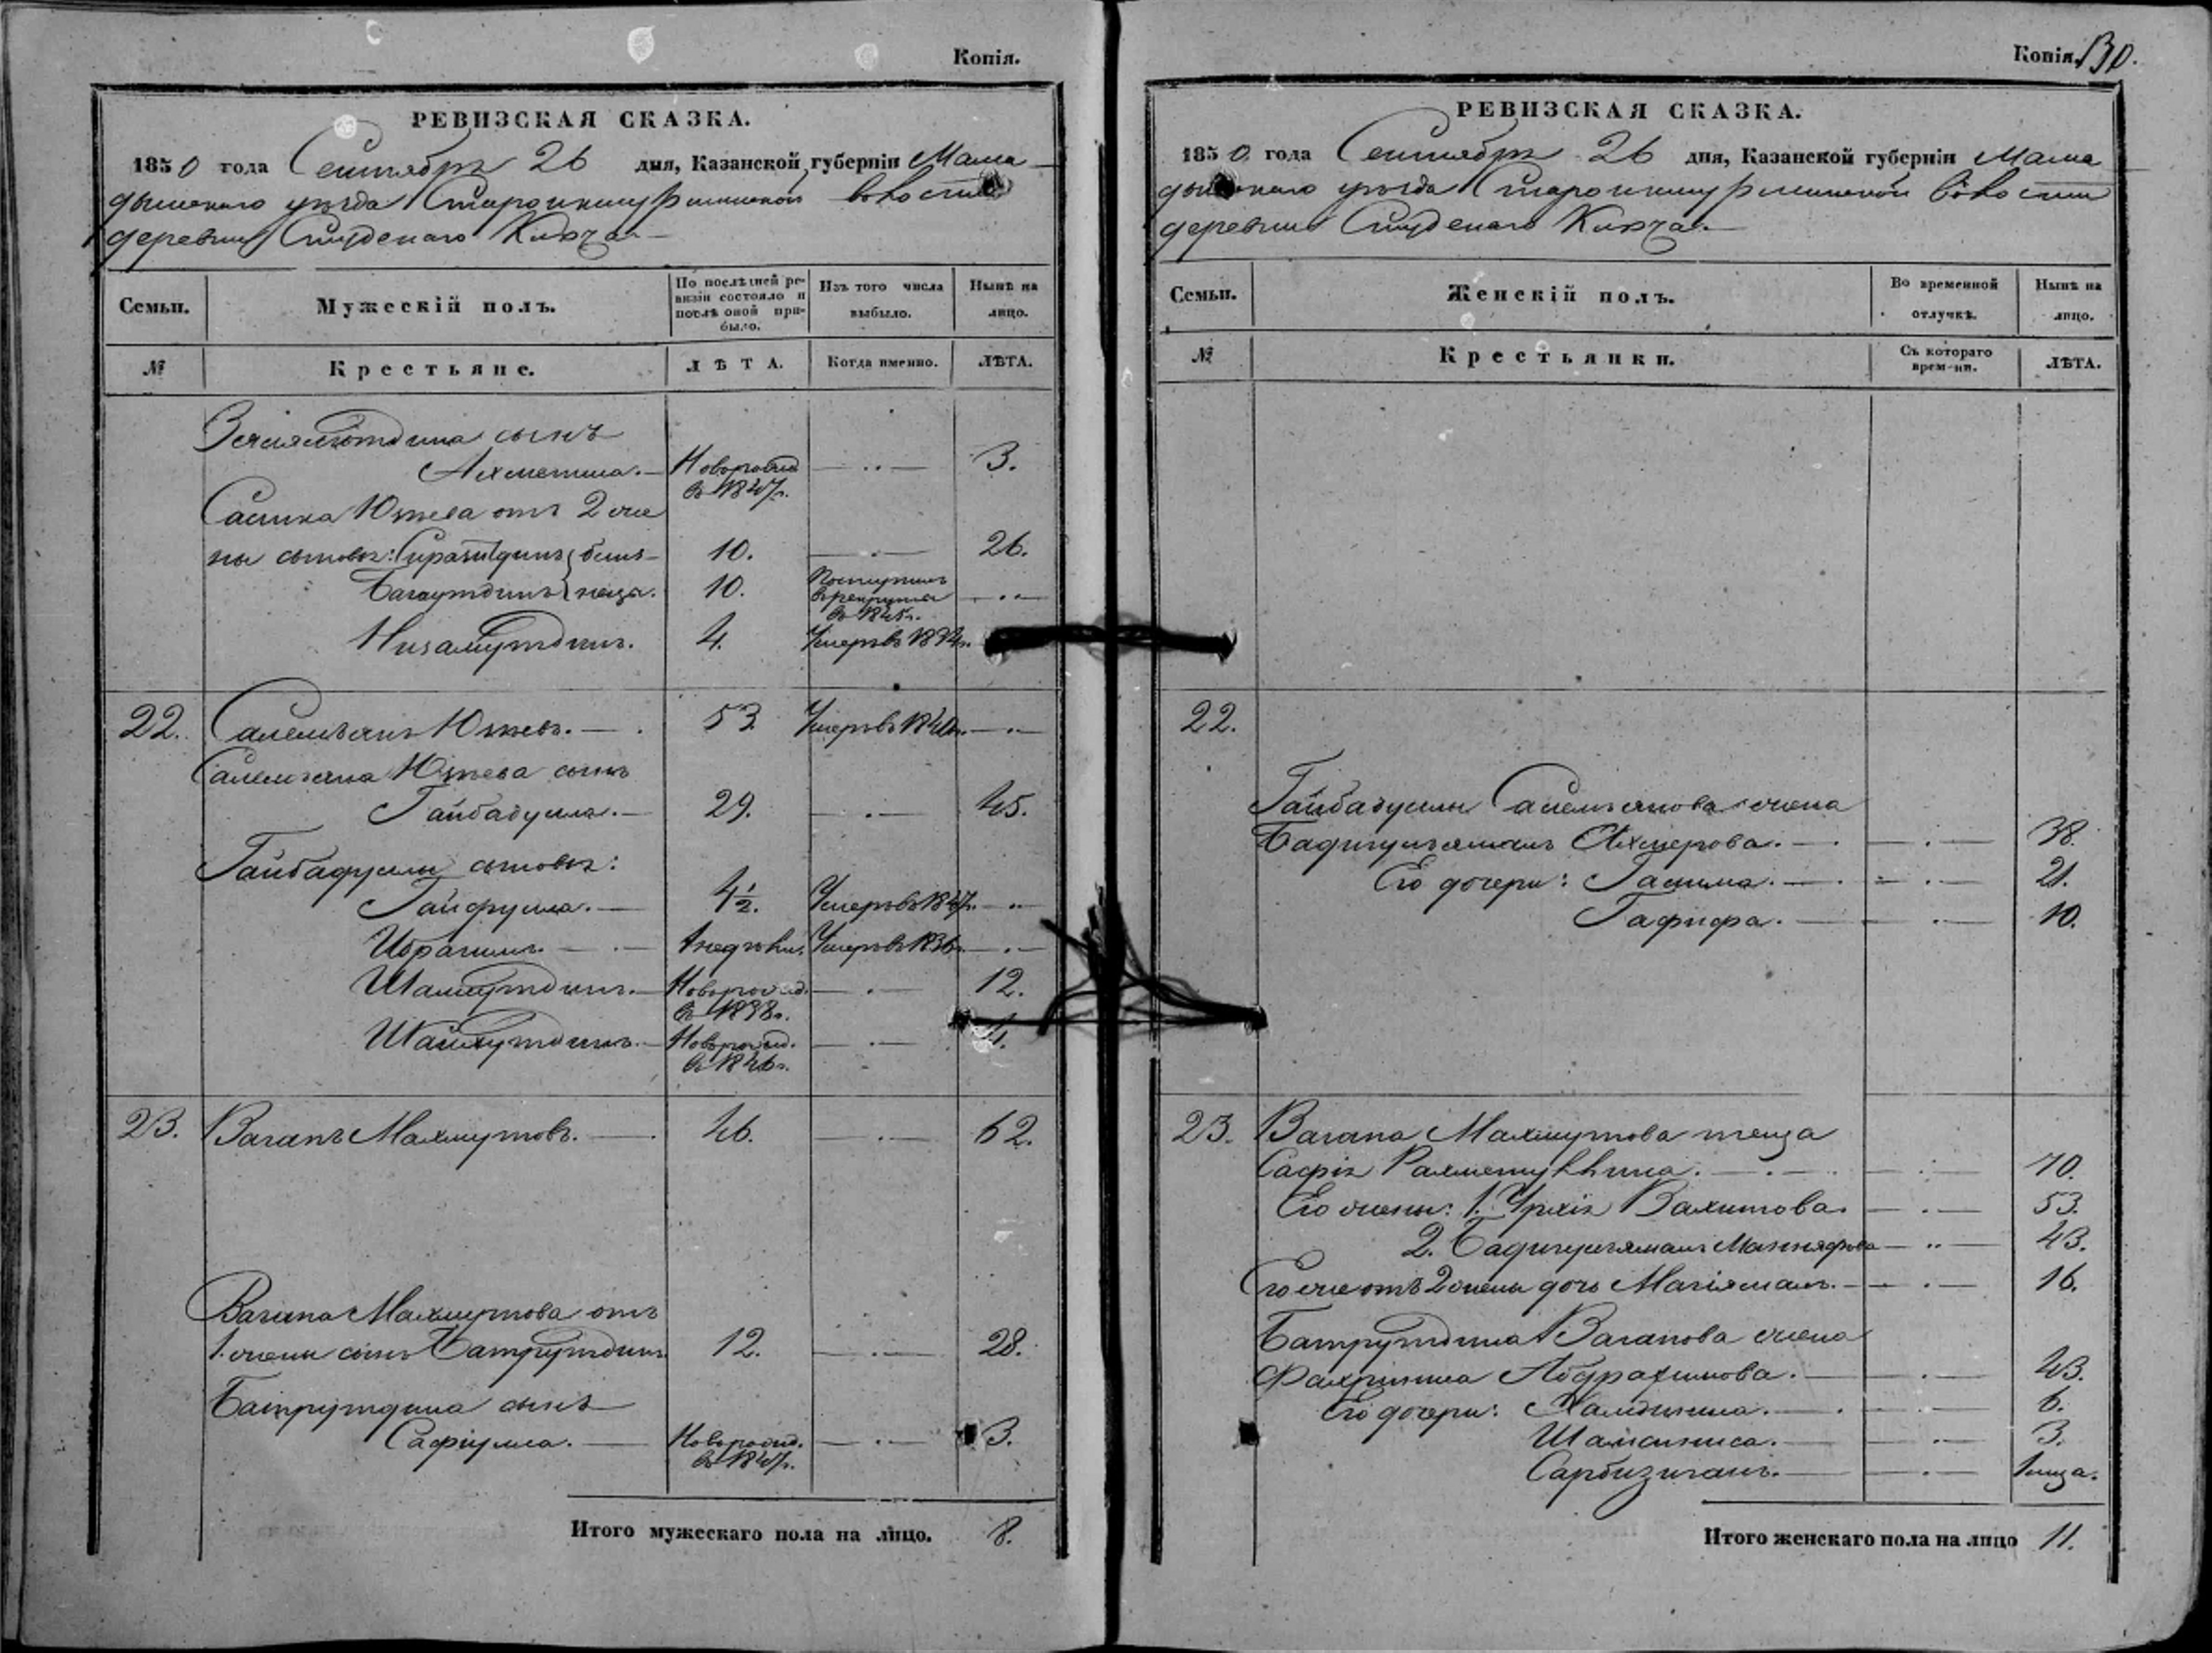 Копія.
РЕВИЗСКАЯ СКАЗКА.
1850 года Сентября 26 дня, Казанской губерніи Мама-
дышскаго уѣзда волости
деревни Студенаго Ключа
Семьи.
Мужескій полъ.
По послѣдней ре-
визіи состояло и
послѣ оной при-
было.
Изъ того числа
выбыло.
Нынѣ на
лицо.
№
Крестьяне.
ЛѢТА.
Когда именно.
ЛѢТА.
сынъ
Ахметша.
Новорожд
въ 1847г.
3.
Юзеева отъ 2 же
ны сыновья: близ-
10. 26.
неца.
10. Поступилъ
въ рекруты
въ 1845г.
Низамутдинъ. 4. Умеръ въ 1834г.
22. 53. Умеръ въ 1840г.
сынъ
Гайбадулла. 29. 45.
Гайбадуллы сыновья:
Гайфулла. 4½. Умеръ въ 1847г.
Ибрагимъ. 1 недѣли. Умеръ въ 1836г.
Шамсутдинъ. Новорожд. 12.
въ 1838г.
Шайхутдинъ. Новорожд. 4.
въ 1846г.
23. Ваганъ Махмутовъ. 46. 62.
Вагана Махмутова отъ
1. жены сынъ Батрутдинъ 12. 28.
Батрутдина сынъ
Сафіулла. Новорожд. 3.
въ 1847г.
Итого мужескаго пола на лицо. 8.
Копія. 130.
РЕВИЗСКАЯ СКАЗКА.
1850 года Сентября 26 дня, Казанской губерніи Мама
дышскаго уѣзда волости
деревни Студенаго Ключа
Семьи.
Женскій полъ.
Во временной
отлучкѣ.
Нынѣ на
лицо.
№
Крестьянки.
Съ котораго
времени.
ЛѢТА.
22.
Гайбадуллы жена
Бадигульямалъ 38.
Его дочери: Галима. 21.
Гафифа. 10.
23. Вагана Махмутова теща
Сафія Рахметуллина. 70.
Его жены: 1. Вахитова. 53.
2. 43.
Его же отъ 2 жены дочь 16.
Батрутдина Ваганова жена
Абдрахимова. 43.
Его дочери: 6.
Шамсиниса. 3.
1 мца.
Итого женскаго пола на лицо 11.